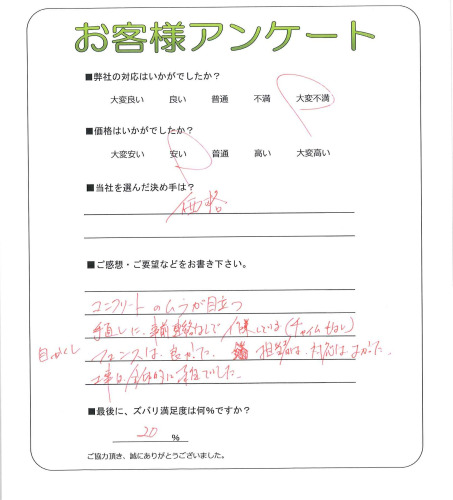 お客様アンケート
■弊社の対応はいかがでしたか?
大変良い 良い 普通 不満 大変不満
■価格はいかがでしたか?
大変安い 安い 普通 高い 大変高い
■当社を選んだ決め手は?
価格
■ご感想・ご要望などをお書き下さい。
コンクリートのムラが目立つ
手直しに、事前連絡なしで 作業している(チャイムなし)
目かくしフェンスは、良かった。 担当者は、対応はよかった。
工事は、全体的に
でした。
■最後に、ズバリ満足度は何%ですか?
20 %
ご協力頂き、誠にありがとうございました。